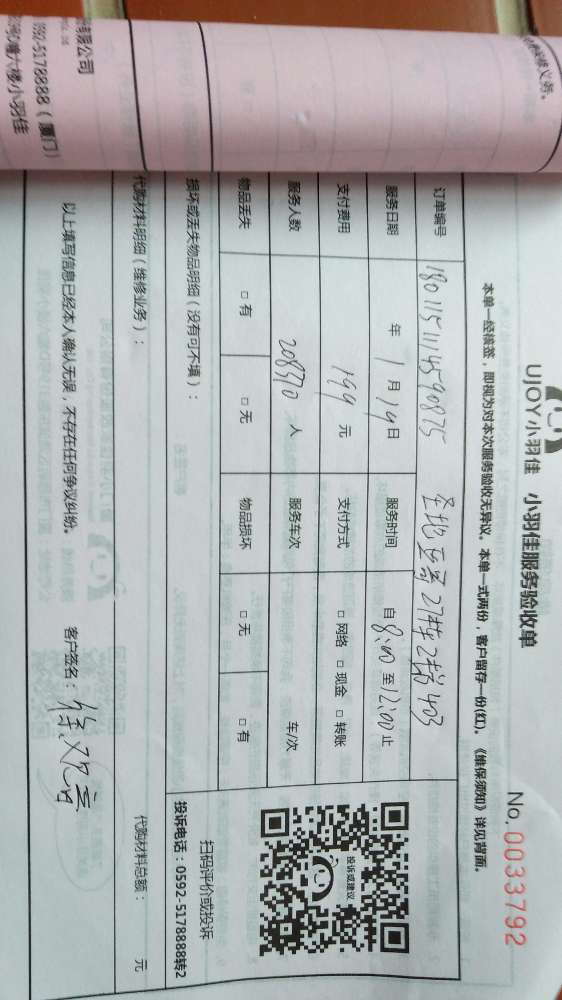 UJOY小羽佳 小羽佳服务验收单
No. 0033792
本单一经核签，即视为对本次服务验收无异议。本单一式两份，客户留存一份(红)。《维保须知》详见背面。
订单编号 1801151114590875
27栋2梯403
服务日期 年 1 月 19 日 服务时间 自 8:00 至 12:00 止
支付费用 199 元 支付方式 □ 网络 □ 现金 □ 转账
服务人数 208370 人 服务车次 车/次
物品丢失 □ 有 □ 无 物品损坏 □ 无 □ 有
损坏或丢失物品明细（没有可不填）：
投诉或建议
扫码评价或投诉
投诉电话：0592-5178888转2
代购材料明细（维修业务）： 代购材料总额： 元
以上填写信息已经本人确认无误，不存在任何争议纠纷。 客户签名：
义务。
有限公司
592-5178888（厦门）
六楼小羽佳